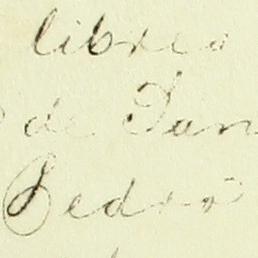 libreo
de San
Pedro